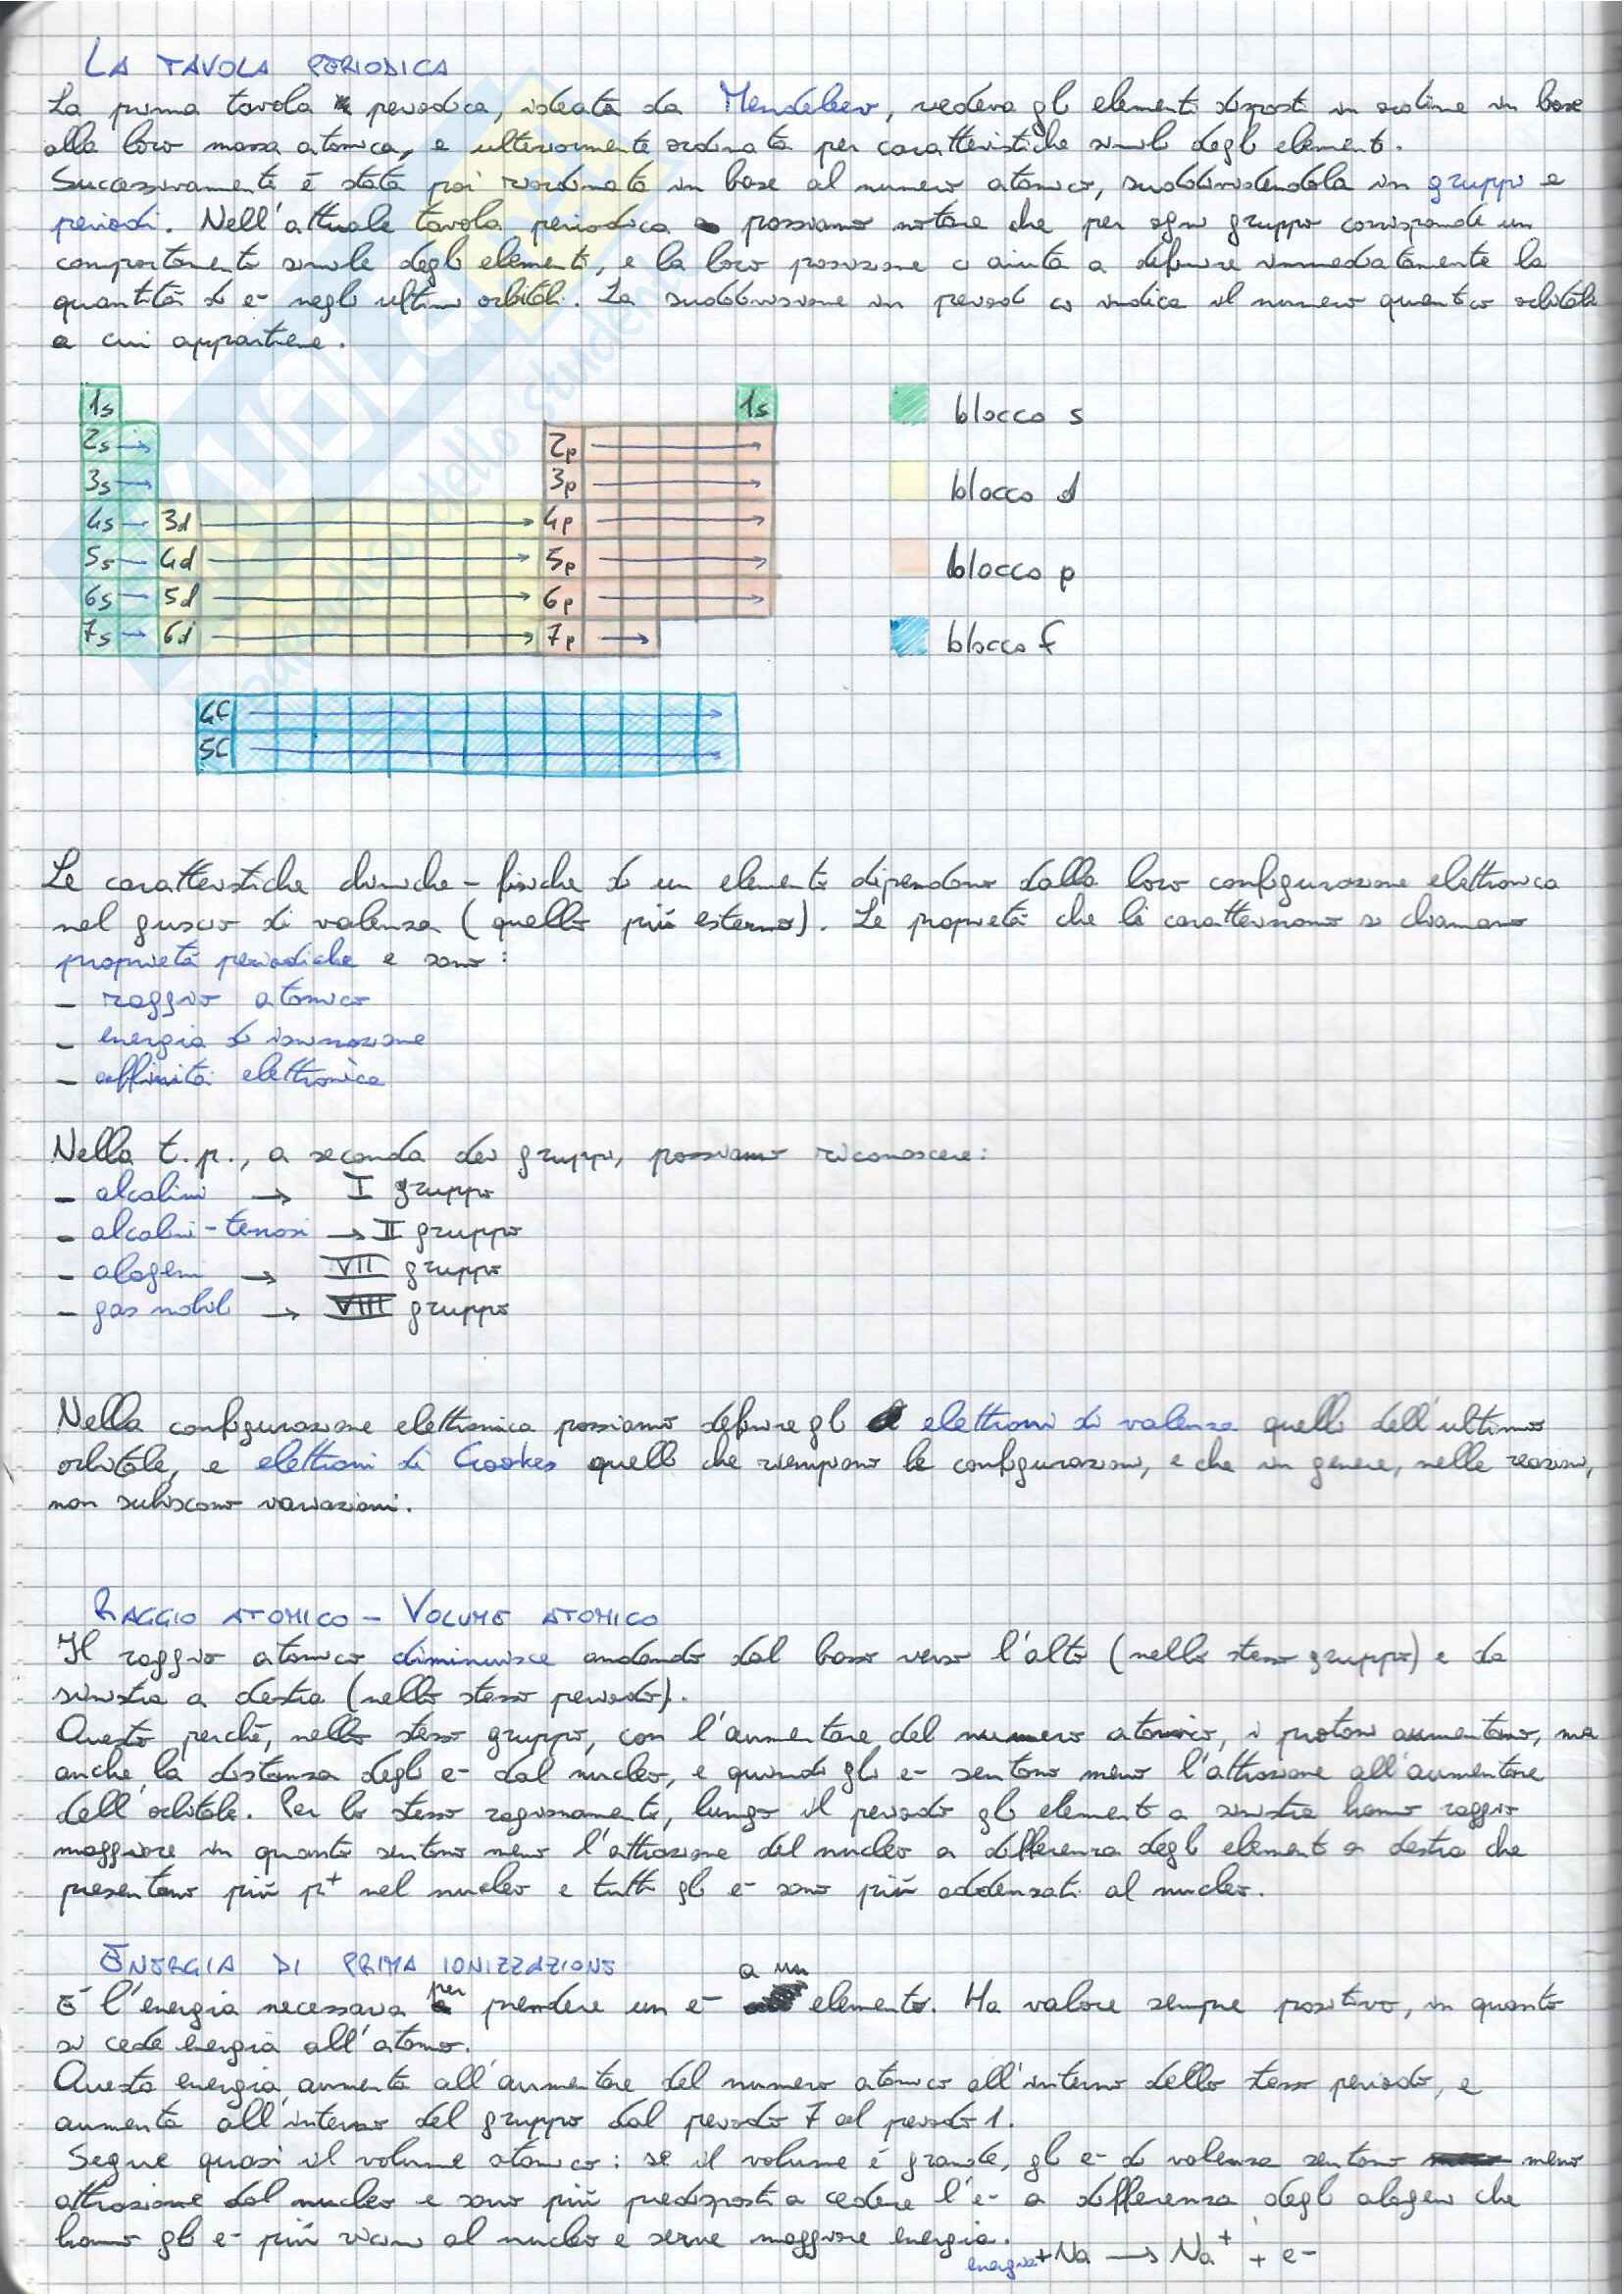 LA TAVOLA PERIODICA
La prima tavola periodica, ideata da Mendeleev, vedeva gli elementi disposti in ordine in base
alla loro massa atomica, e ulteriormente ordinata per caratteristiche simili degli elementi.
Successivamente è stata poi riordinata in base al numero atomico, suddividendola in gruppi e
periodi. Nell'attuale tavola periodica possiamo notare che per ogni gruppo corrisponde un
comportamento simile degli elementi, e la loro posizione ci aiuta a definire immediatamente la
quantità di e- negli ultimi orbitali. La suddivisione in periodi ci indica il numero quantico orbitale
a cui appartiene.
1s 1s blocco s
2s → 2p →
3s → 3p → blocco d
4s → 3d → 4p →
5s → 4d → 5p → blocco p
6s → 5d → 6p →
7s → 6d → 7p → blocco f
4f →
5f →
Le caratteristiche chimiche-fisiche di un elemento dipendono dalla loro configurazione elettronica
nel guscio di valenza (quello più esterno). Le proprietà che li caratterizzano si chiamano
proprietà periodiche e sono:
- raggio atomico
- energia di ionizzazione
- affinità elettronica
Nella t.p., a seconda dei gruppi, possiamo riconoscere:
- alcalini → I gruppo
- alcalini-terrosi → II gruppo
- alogeni → VII gruppo
- gas nobili → VIII gruppo
Nella configurazione elettronica possiamo definire gli elettroni di valenza quelli dell'ultimo
orbitale, e elettroni di Crookes quelli che riempiono le configurazioni, e che in genere, nelle reazioni,
non subiscono variazioni.
RAGGIO ATOMICO - VOLUME ATOMICO
Il raggio atomico diminuisce andando dal basso verso l'alto (nello stesso gruppo) e da
sinistra a destra (nello stesso periodo).
Questo perchè, nello stesso gruppo, con l'aumentare del numero atomico, i protoni aumentano, ma
anche la distanza degli e- dal nucleo, e quindi gli e- sentono meno l'attrazione all'aumentare
dell'orbitale. Per lo stesso ragionamento, lungo il periodo gli elementi a sinistra hanno raggio
maggiore in quanto sentono meno l'attrazione del nucleo a differenza degli elementi a destra che
presentano più p+ nel nucleo e tutti gli e- sono più addensati al nucleo.
ENERGIA DI PRIMA IONIZZAZIONE
È l'energia necessaria per prendere un e- a un elemento. Ha valore sempre positivo, in quanto
si cede energia all'atomo.
Questa energia aumenta all'aumentare del numero atomico all'interno dello stesso periodo, e
aumenta all'interno del gruppo dal periodo 7 al periodo 1.
Segue quasi il volume atomico: se il volume è grande, gli e- di valenza sentono meno
attrazione dal nucleo e sono più predisposti a cedere l'e- a differenza degli alogeni che
hanno gli e- più vicini al nucleo e serve maggiore energia.
energia + Na → Na+ + e-